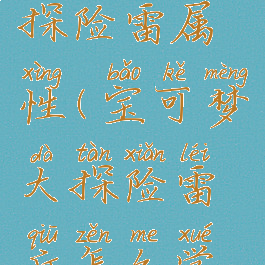 探险雷属
xìng bǎo kě mèng
性(宝可梦
dà tàn xiǎn léi
大探险雷
qiú zěn me xué